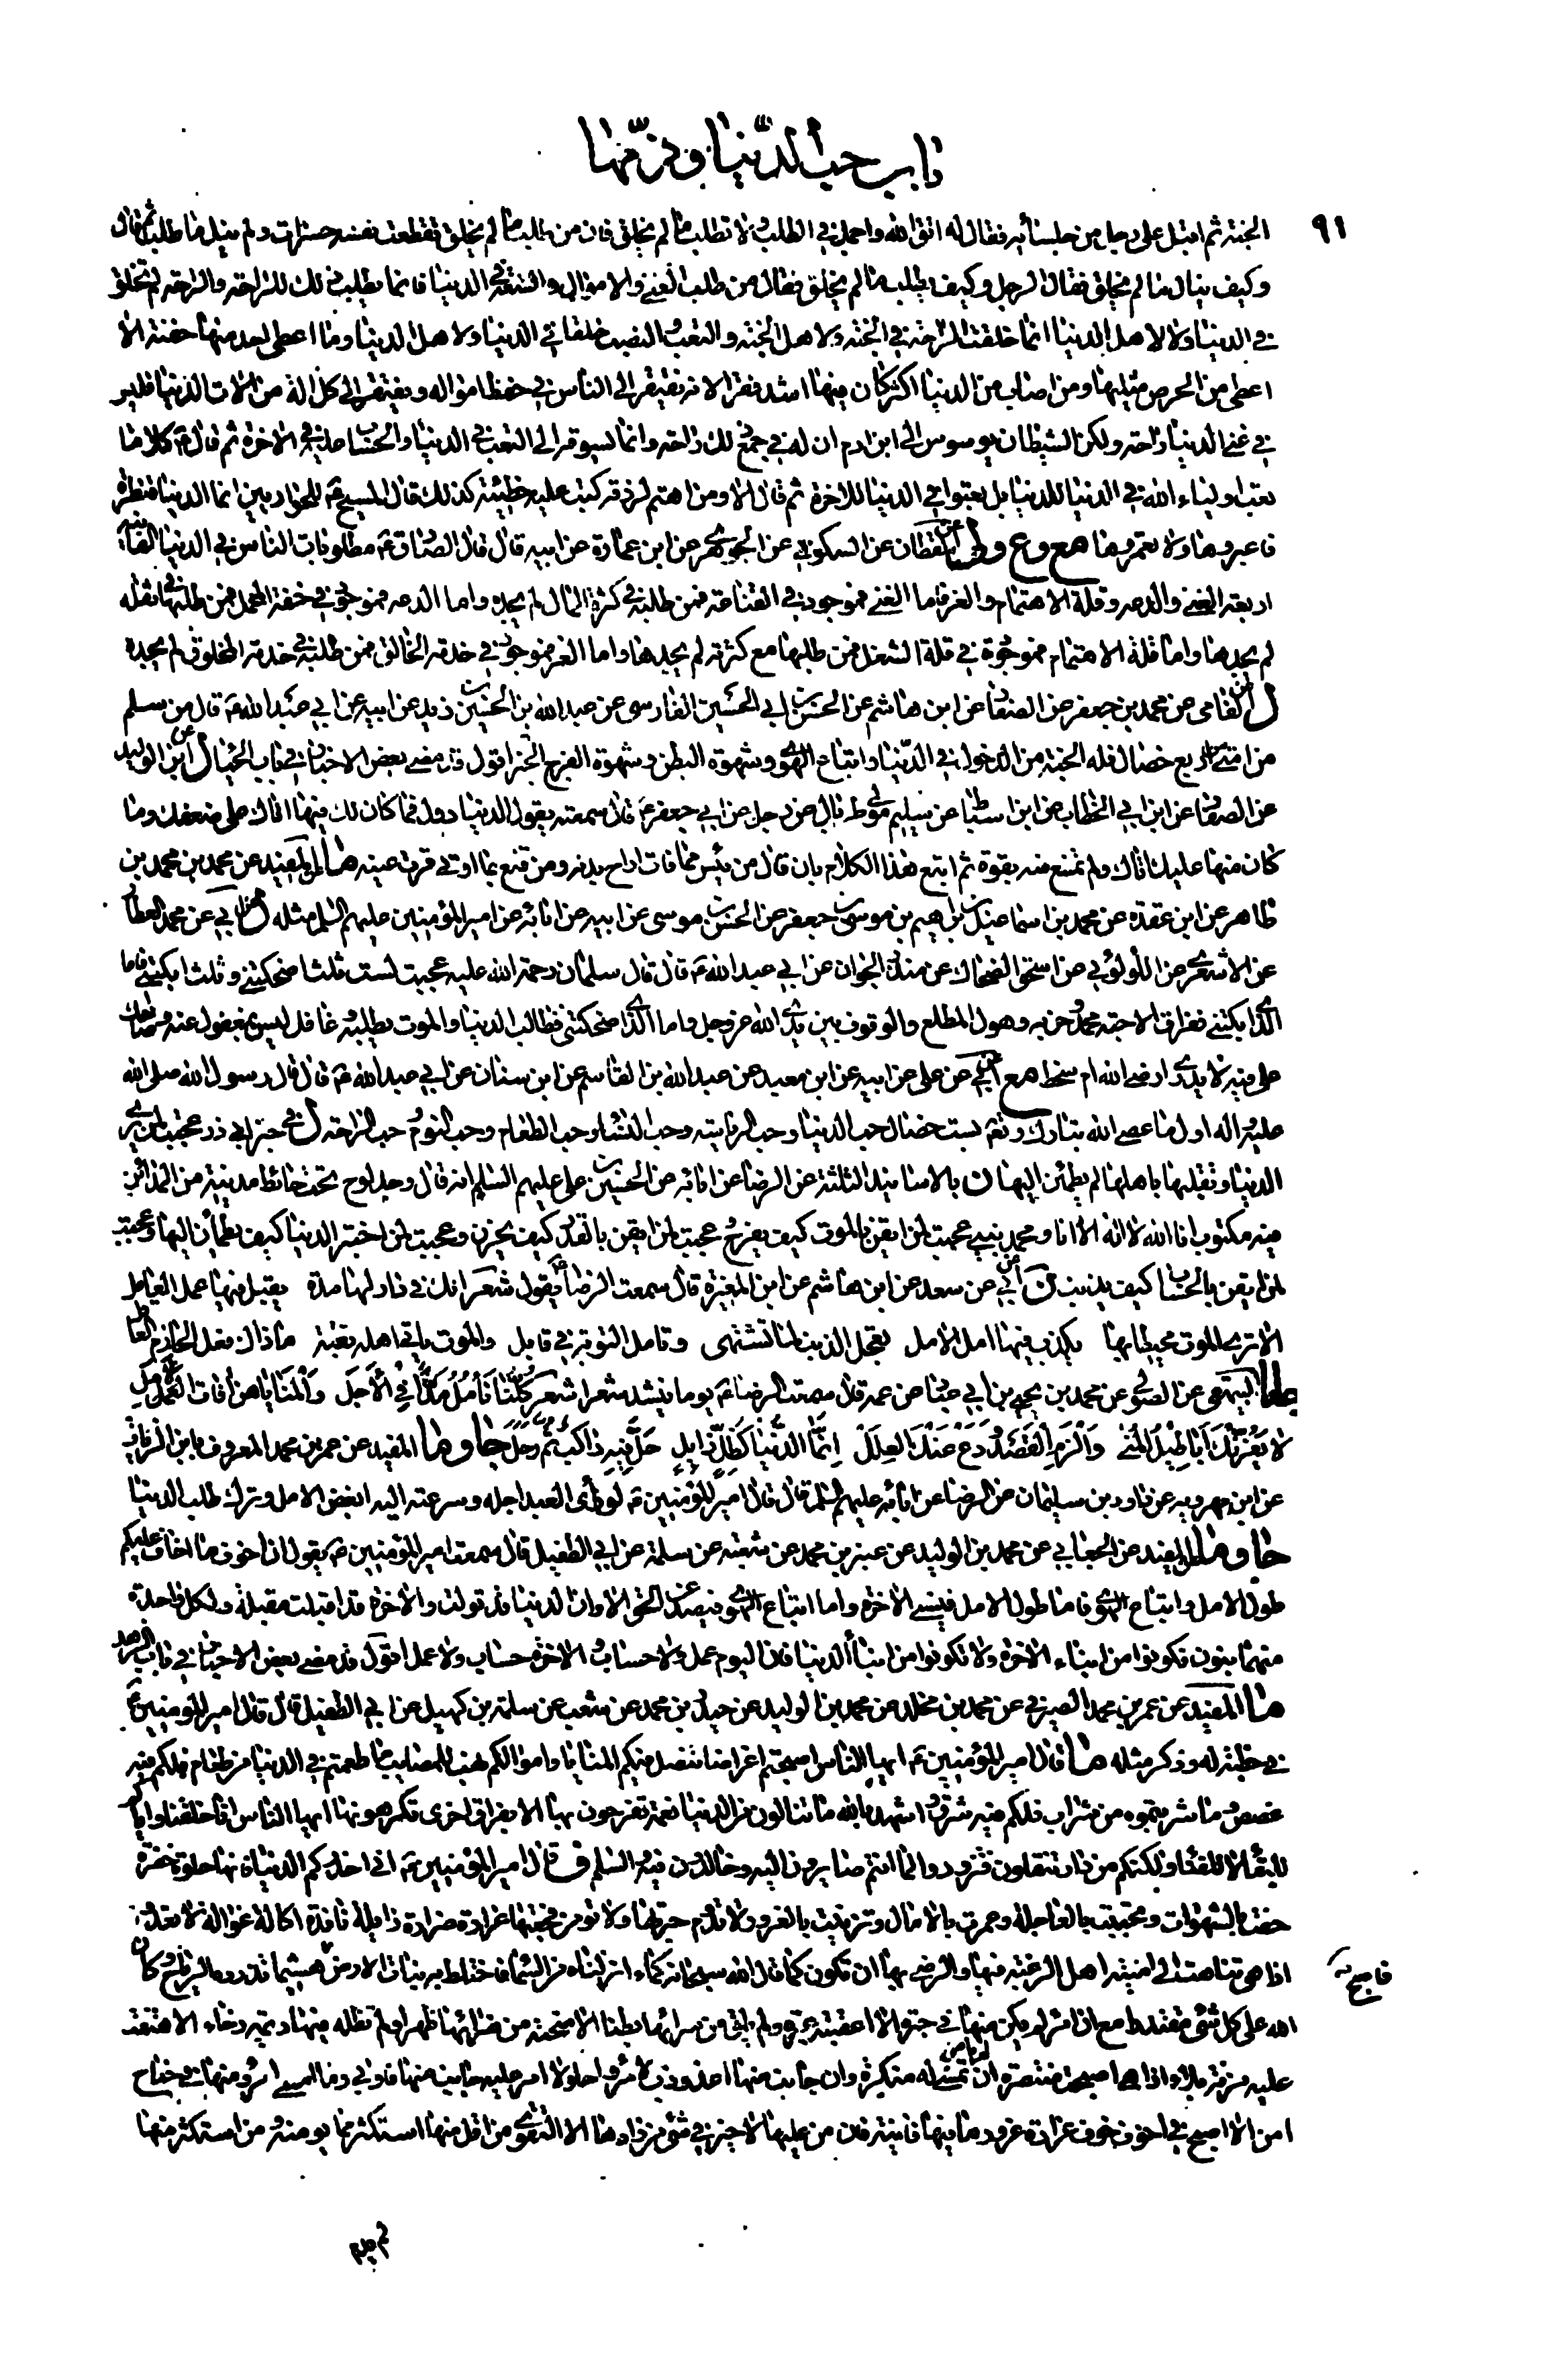 باب حب الدنيا وذمها
٩١
الجنة ثم اقبل على رجل من جلسائه فقال له اتق الله واجمل في الطلب ولا تطلب ما لم يخلق فان من طلب ما لم يخلق تقطعت نفسه حسرات ولم ينل ما طلب ثم قال
وكيف ينال ما لم يخلق فقال الرجل وكيف يطلب ما لم يخلق فقال من طلب الغنى والاموال والسعة في الدنيا فانما يطلب ذلك للراحة والراحة لم تخلق
في الدنيا ولا لاهل الدنيا انما خلقت الراحة في الجنة ولاهل الجنة والتعب والنصب خلقا في الدنيا ولاهل الدنيا وما اعطي احد منها حفنة الا
اعطي من الحرص مثليها ومن اصاب من الدنيا اكثر كان فيها اشد فقرا لانه يفتقر الى الناس في حفظ امواله ويفتقر الى كل الة من الات الدنيا فليس
في غنى الدنيا راحة ولكن الشيطان يوسوس الى ابن ادم ان له في جمع ذلك راحة وانما يسوقه الى التعب في الدنيا والحساب عليه في الاخرة ثم قال ع كلا ما
تعب اولياء الله في الدنيا للدنيا بل تعبوا في الدنيا للاخرة ثم قال الا ومن اهتم لرزقه كتب عليه خطيئة كذلك قال المسيح ع للحواريين انما الدنيا قنطرة
فاعبروها ولا تعمروها مع وع ول عن القطان عن السكوني عن الجوهري عن ابن عمارة عن ابيه قال قال الصادق ع مطلوبات الناس في الدنيا الفانية
اربعة الغنى والدعة وقلة الاهتمام والعز فاما الغنى فموجود في القناعة فمن طلبه في كثرة المال لم يجده واما الدعة فموجودة في خفة المحمل فمن طلبها في ثقله
لم يجدها واما قلة الاهتمام فموجودة في قلة الشغل فمن طلبها مع كثرته لم يجدها واما العز فموجود في خدمة الخالق فمن طلبه في خدمة المخلوق لم يجده
ل الفامي عن محمد بن جعفر عن الصفار عن ابن هاشم عن الحسن بن ابي الحسين الفارسي عن عبد الله بن الحسين بن زيد عن ابيه عن ابي عبد الله ع قال من سلم
من امتي من اربع خصال فله الجنة من الدخول في الدنيا واتباع الهوى وشهوة البطن وشهوة الفرج الخبر اقول قد مضى بعض الاخبار في باب الخيال ابن الوليد
عن الصفار عن ابن ابي الخطاب عن ابن سنان عن سليم مولى طربال عن رجل عن ابي جعفر ع قال سمعته يقول الدنيا دول فما كان لك فيها اتاك على ضعفك وما
كان منها عليك اتاك ولم تمتنع منه بقوة ثم اتبع هذا الكلام بان قال من يئس مما فات اراح بدنه ومن قنع بما اوتي قرت عينه ما المفيد عن محمد بن محمد بن
طاهر عن ابن عقدة عن محمد بن اسماعيل بن ابراهيم بن موسى بن جعفر عن الحسن بن موسى عن ابيه عن ابائه عن امير المؤمنين عليهم السلم مثله ل ابي عن محمد العطار
عن الاشعري عن اللؤلؤي عن اسحق الضحاك عن منذر الجوان عن ابي عبد الله ع قال قال سلمان رحمة الله عليه عجبت لست ثلث اضحكتني وثلث ابكتني فاما
الذي ابكتني ففراق الاحبة محمد وحزبه وهول المطلع والوقوف بين يدي الله عز وجل واما الذي اضحكتني فطالب الدنيا والموت يطلبه وغافل ليس بمغفول عنه وضاحك
ملء فيه لا يدري ارضى الله ام سخط مع ابي عن علي عن ابيه عن ابن معبد عن عبد الله بن القاسم عن ابن سنان عن ابي عبد الله ع قال قال رسول الله صلى الله
عليه واله اول ما عصي الله تبارك وتعالى بست خصال حب الدنيا وحب الرياسة وحب النساء وحب الطعام وحب النوم وحب الراحة ل في خبر ابي ذر عجبت لمن يرى
الدنيا وتقلبها باهلها لم يطمئن اليها ن بالاسانيد الثلثة عن الرضا عن ابائه عن الحسين بن علي عليهم السلم انه قال وجد لوح تحت حائط مدينة من المدائن
فيه مكتوب انا الله لا اله الا انا ومحمد نبيي عجبت لمن ايقن بالموت كيف يفرح عجبت لمن ايقن بالقدر كيف يحزن وعجبت لمن اختبر الدنيا كيف يطمئن اليها وعجبت
لمن ايقن بالحساب كيف يذنب ن ابي عن سعد عن ابن هاشم عن ابن المغيرة قال سمعت الرضا ع يقول شعر انك في دار لها مدة يقبل فيها عمل العامل
الا ترى الموت محيطا بها يكذب فيها امل الامل تعجل الذنب لما تشتهي وتامل التوبة في قابل والموت ياتي اهله بغتة ما ذاك فعل الحازم العاقل
ن البيهقي عن الصولي عن محمد بن يحيى بن ابي عباد عن عمه قال سمعت الرضا ع يوما ينشد شعرا شعر كلنا نأمل مدا في الأجل والمنايا هن آفات الأمل
لا تغرنك أباطيل المنى والزم القصد ودع عنك العلل إنما الدنيا كظل زايل حل فيه راكب ثم رحل جا وما المفيد عن عمر بن محمد المعروف بابن الزيات
عن ابن مهرويه عن داود بن سليمان عن الرضا عن ابائه عليهم السلم قال قال امير المؤمنين ع لو رأى العبد اجله وسرعته اليه ابغض الامل وترك طلب الدنيا
جا وما المفيد عن الجعابي عن محمد بن الوليد عن عنبر بن محمد عن شعبة عن سلمة عن ابي الطفيل قال سمعت امير المؤمنين ع يقول ان اخوف ما اخاف عليكم
طول الامل واتباع الهوى فاما طول الامل فينسي الاخرة واما اتباع الهوى فيصد عن الحق الا وان الدنيا قد تولت والاخرة قد اقبلت مقبلة ولكل واحدة
منهما بنون فكونوا من ابناء الاخرة ولا تكونوا من ابناء الدنيا فان اليوم عمل ولا حساب والاخرة حساب ولا عمل اقول قد مضى بعض الاخبار في باب الزهد
ما المفيد عن عمر بن محمد الصيرفي عن محمد بن مخلد عن محمد بن الوليد عن حيدر بن محمد عن شعبة عن سلمة بن كهيل عن ابي الطفيل قال قال امير المؤمنين ع
في خطبة له وذكر مثله ما قال امير المؤمنين ع ايها الناس اصبحتم اغراضا تنتضل فيكم المنايا واموالكم نهب للمصايب ما طعمتم في الدنيا من طعام فلكم فيه
غصص وما شربتموه من شراب فلكم فيه شرق واشهد بالله ما تنالون من الدنيا نعمة تفرحون بها الا بفراق اخرى تكرهونها ايها الناس انا خلقنا واياكم
للبقاء لا للفناء ولكنكم من دار تنقلون فتزودوا لما انتم صايرون اليه وخالدون فيه والسلم ف قال امير المؤمنين ع اني احذركم الدنيا فانها حلوة خضرة
حفت بالشهوات وتحببت بالعاجلة وعمرت بالامال وتزينت بالغرور لا تدوم حبرتها ولا تومن فجعتها غرارة ضرارة زايلة نافدة اكالة غوالة لا تعدو
اذا هي تناهت الى امنية اهل الرغبة فيها والرضى بها ان تكون كما قال الله سبحانه كماء انزلناه من السماء فاختلط به نبات الارض هشيما تذروه الرياح وكان
فاصبح
الله على كل شئ مقتدرا مع ان امرا لم يكن منها في حبرة الا اعقبته عبرة ولم يلق من سرائها بطنا الا منحته من ضرائها ظهرا ولم تطله فيها ديمة رخاء الا هتفت
عليه مزنة بلاء واذا هي اصبحت منتصرة ان تمسي له متنكرة وان جانب منها اعذوذب لامرئ واحلولى امر عليه جانب منها فاوبى وما امسى امرؤ منها في جناح
امن الا اصبح في اخوف خوف غرارة غرور ما فيها فانية فان من عليها لا خير في شئ من زادها الا التقوى من اقل منها استكثر مما يومنه ومن استكثر منها
لم يدم